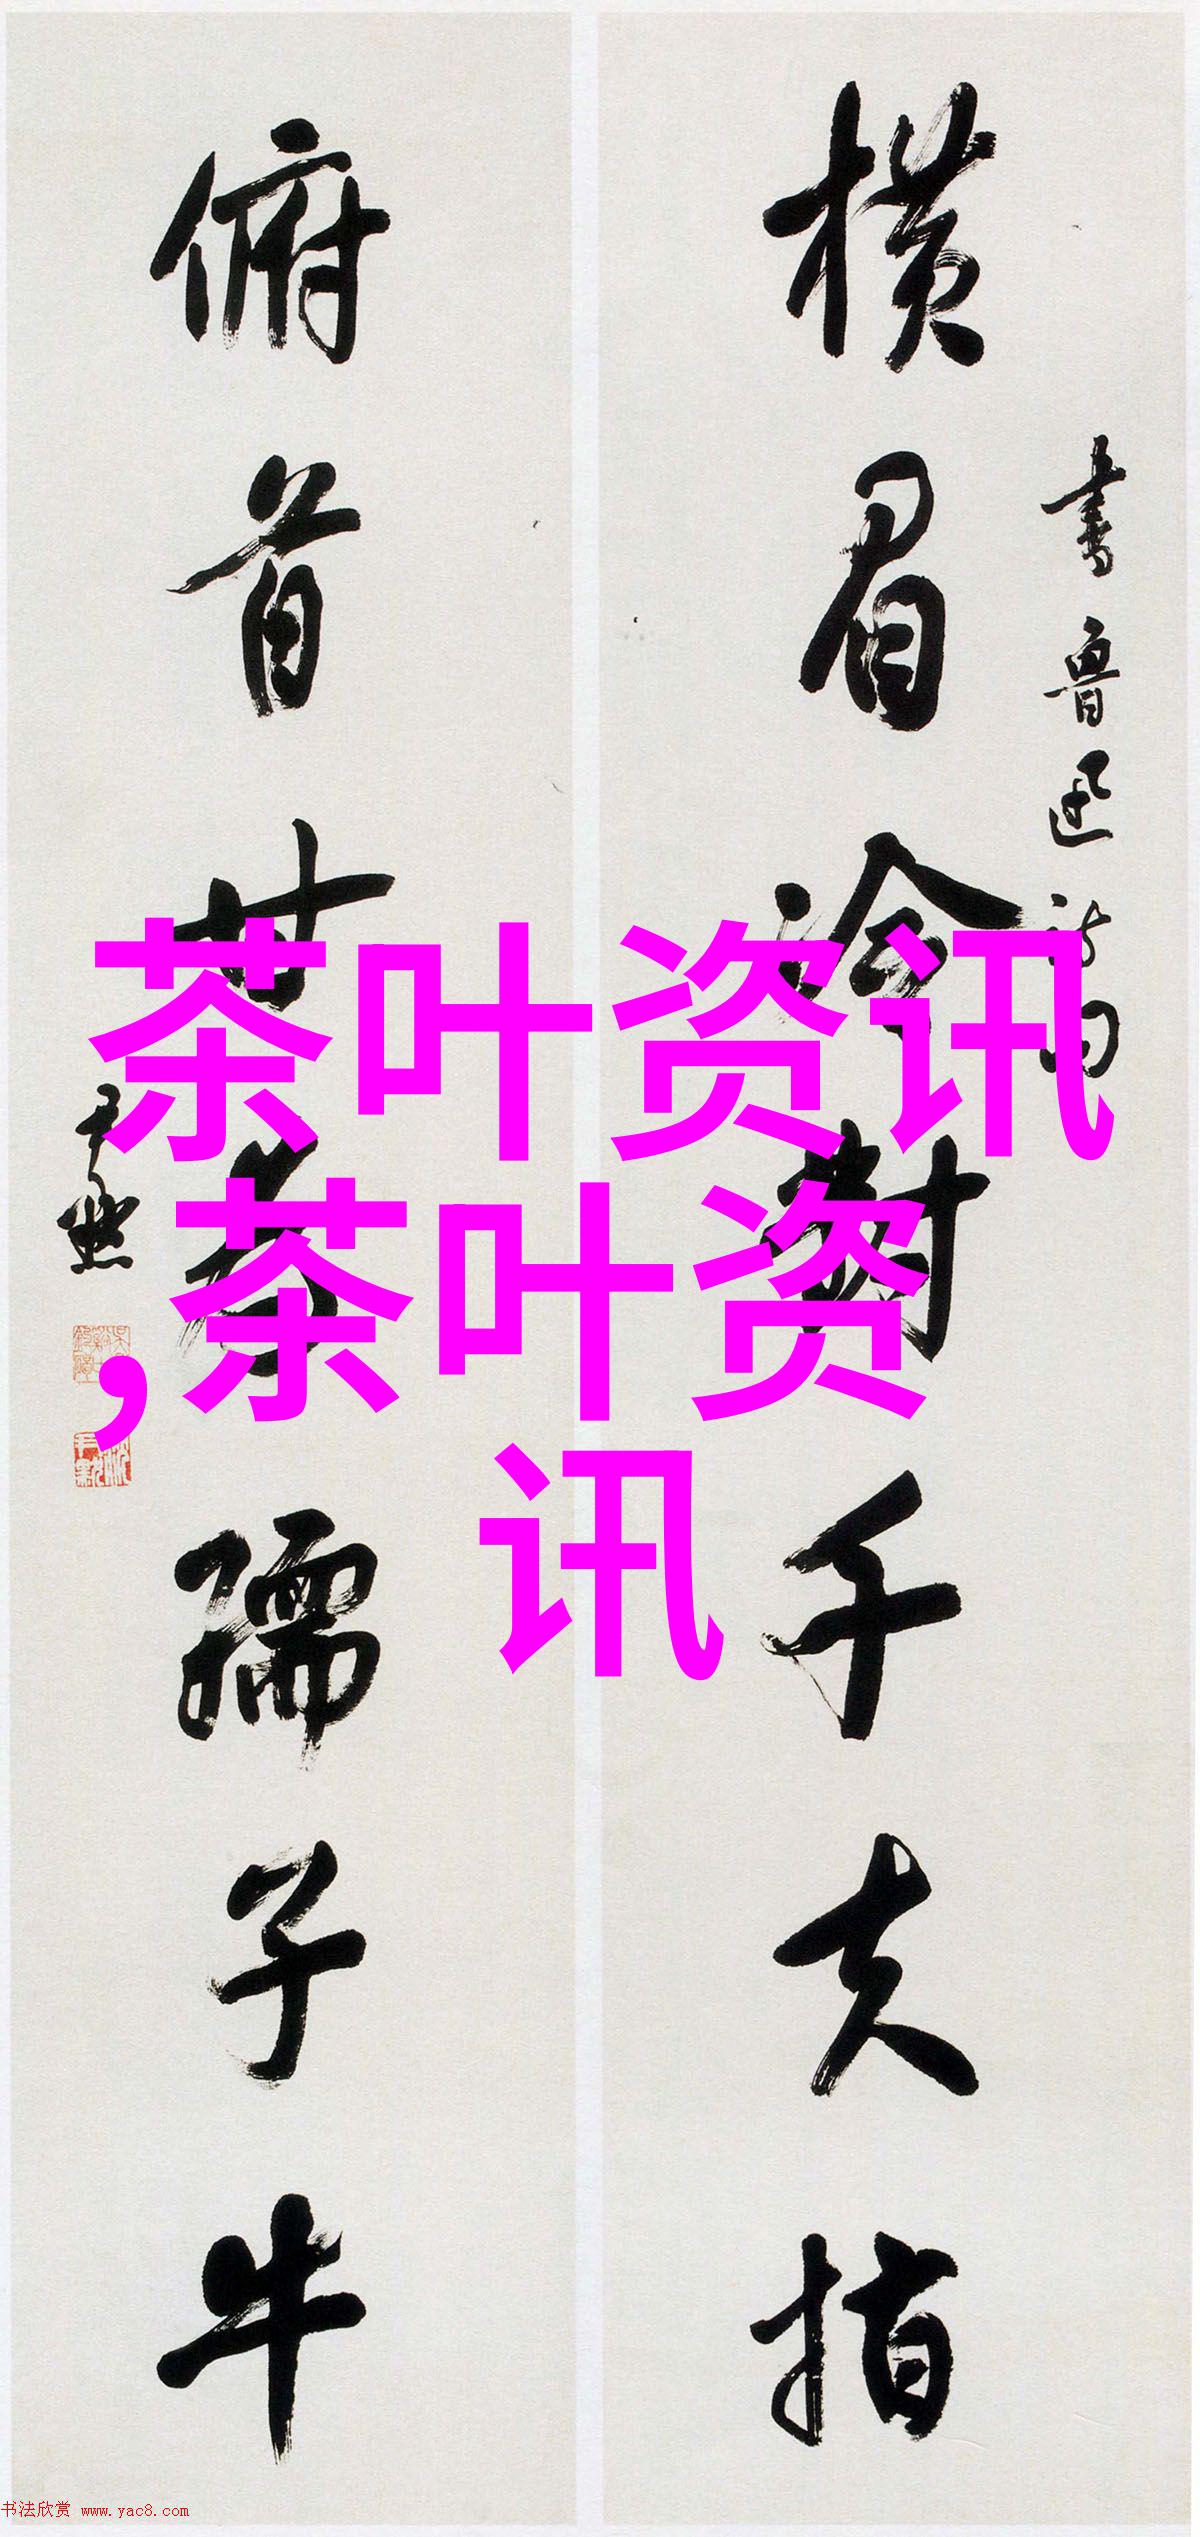 横眉冷對千夫指
书鲁迅诗句
俯首甘為孺子牛
尹默
茶叶资讯
,茶叶资
讯
书法欣赏 www.yac8.com